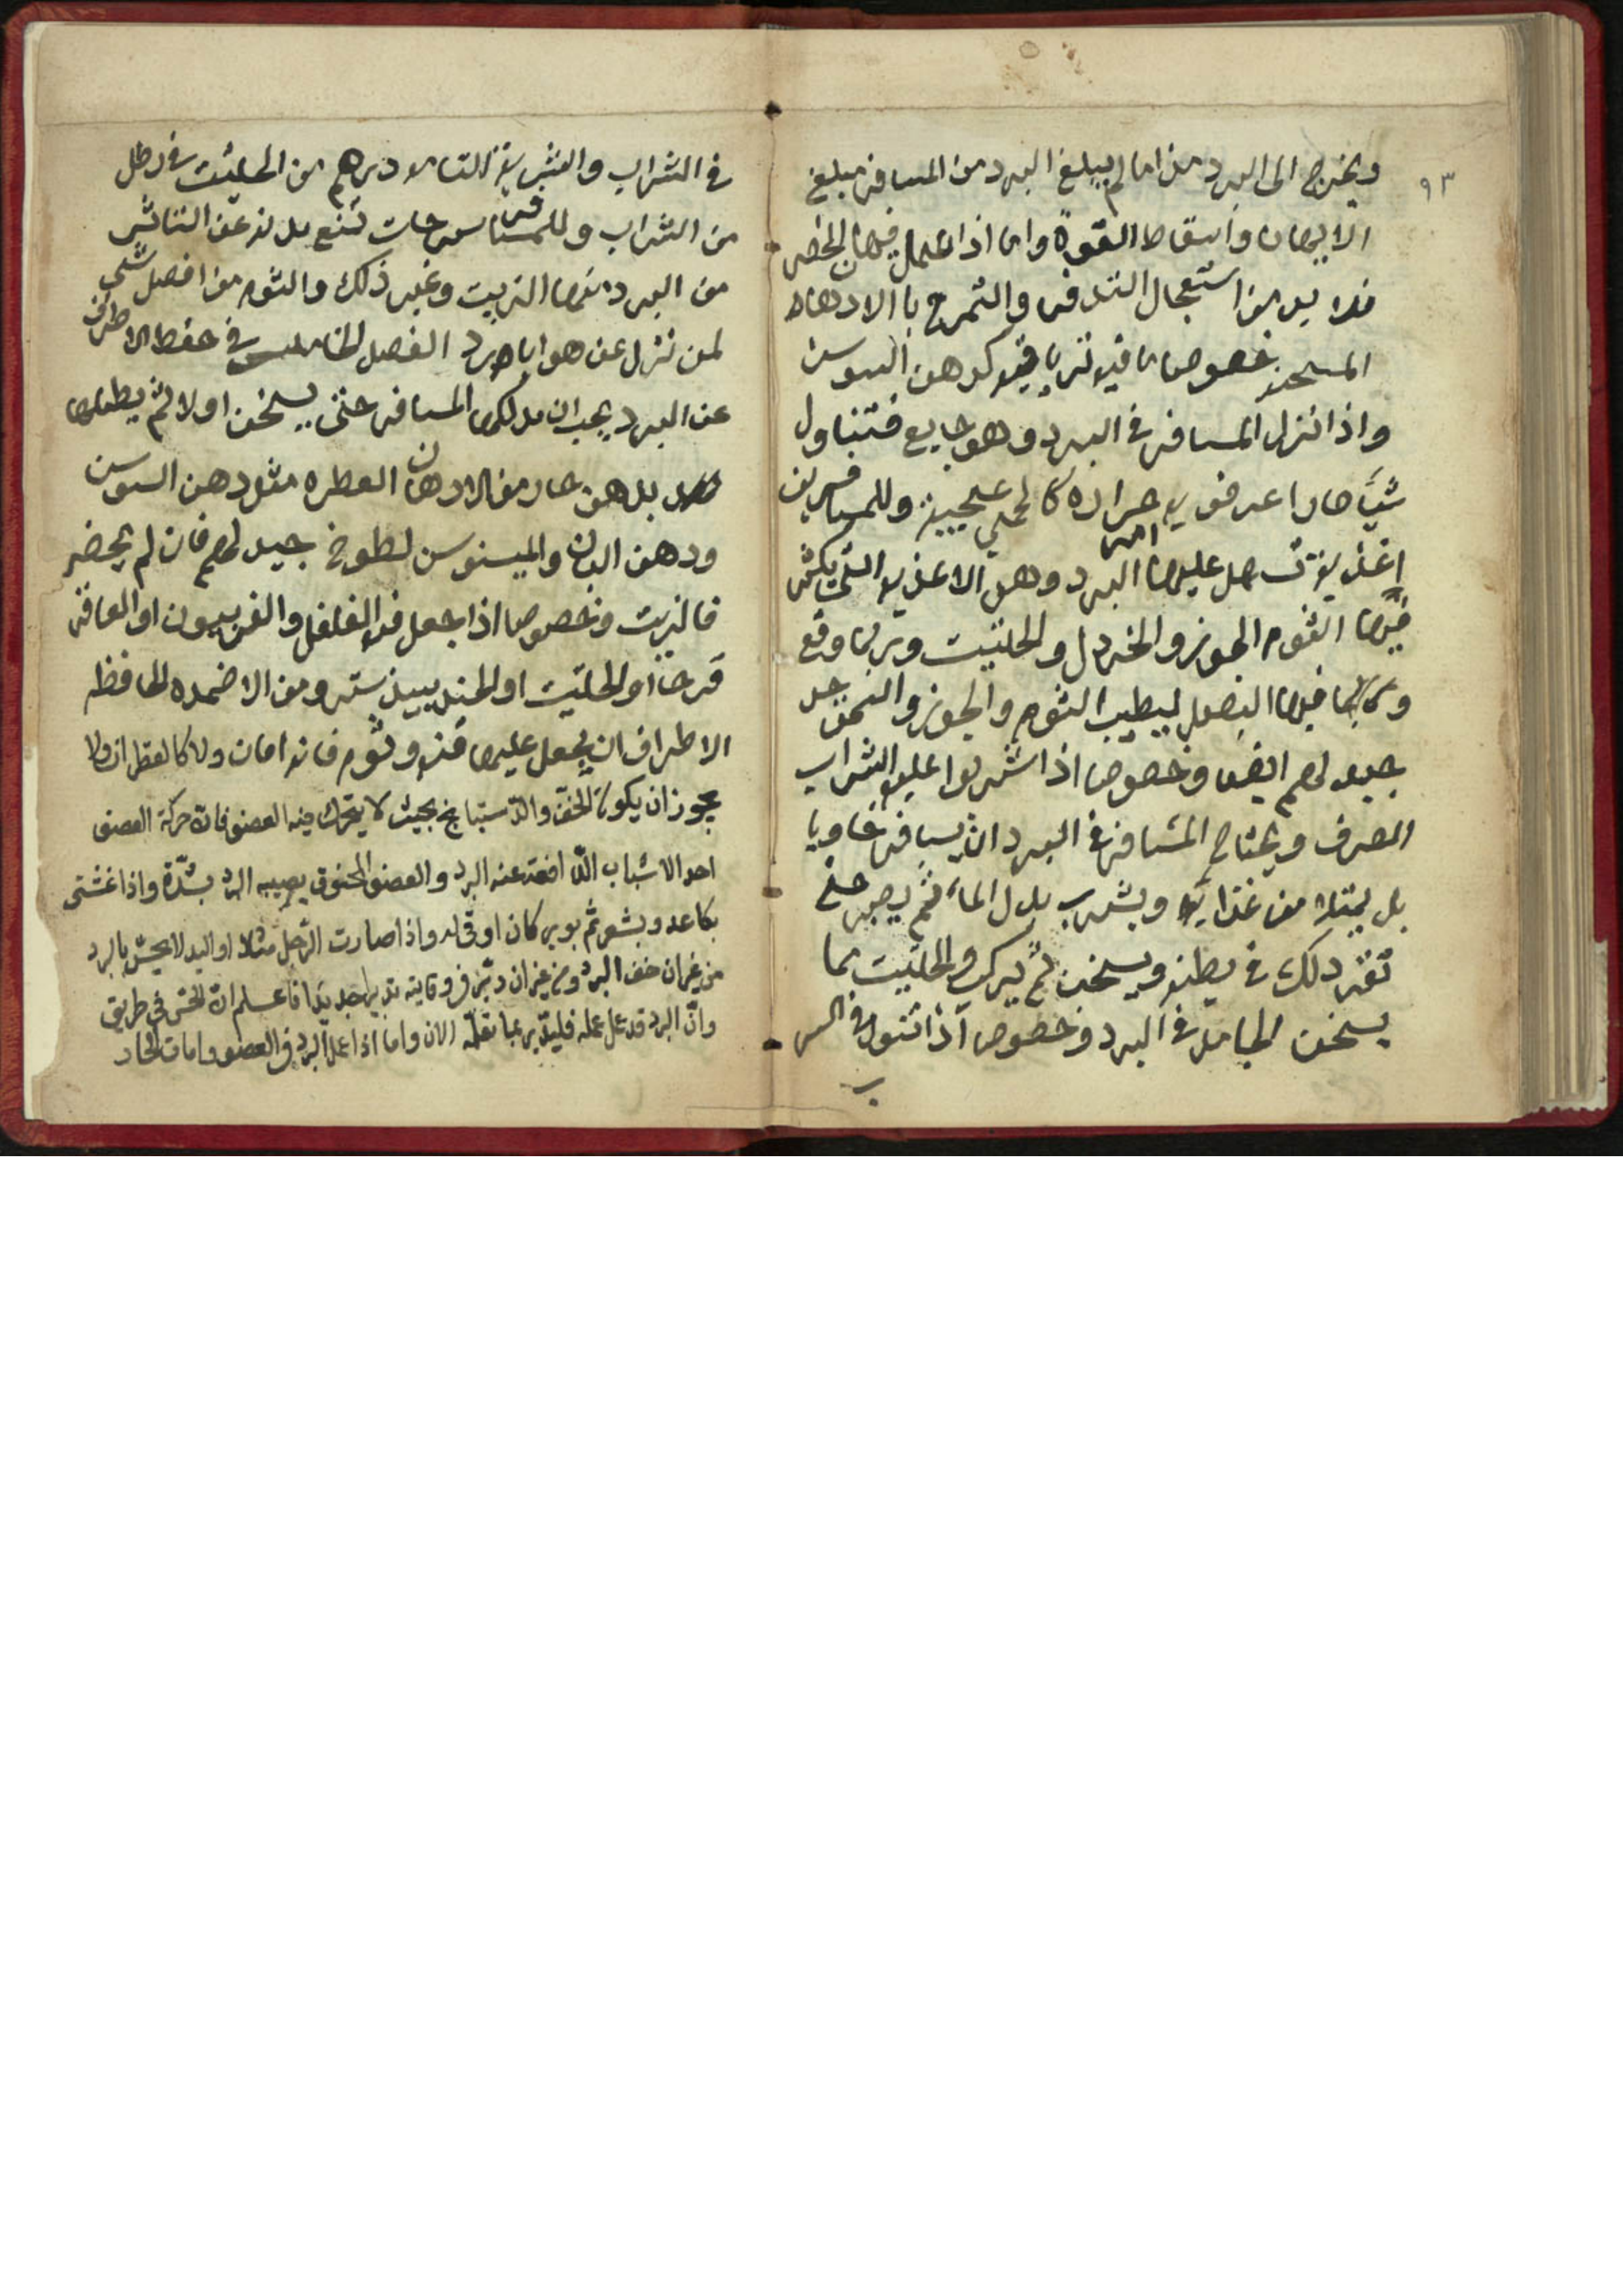 ٩٣
ويخرج الى البرد هذا ما لم يبلغ البرد من المسافر مبلغ
الايهان واسقاط القوة واما اذا عمل فيه الحصر
فلا بد من استعجال التدفى والتمرخ بالادهان
المسخنه خصوصا ما فيه ترياقيه كدهن السوسن
واذا نزل المسافر فى البرد وهو جايع فتناول
شيئا حارا عرض له حرارة كالحمى عجيبة وللمسافرين
اغذية تسهل عليهم امر البرد وهى الاغذية التى يكثر
فيها الثوم والجوز والخردل والحلتيت وربما وقع
فيها المصل ليطيب الثوم والجوز والسمن
جيد لهم ايضا وخصوصا اذا شربوا عليه الشراب
الصرف ويحتاج المسافر فى البرد ان لا يسافر خاويا
بل يمتلا من غذايه ويشرب بدل الماء ثم يصبر حتى
تقر ذلك فى بطنه ويسخن ثم يركب والحلتيت مما
يسخن الجامد فى البرد وخصوصا اذا تنول فى الشر
ب
فى الشراب والشربة التامة درهم من الحلتيت فى رطل
من الشراب وللمسافر مسوحات تمنع بدنه عن التاثر
من البرد منها الزيت وغير ذلك والثوم من افضل شى
لمن نزل عن هوا بارد الفصل الخامس فى حفظ الاطراف
عن البرد يجب ان يدلكها المسافر حتى يسخن اولا ثم يطليها
بدهن حار من الادهان العطره مثل دهن السوسن
ودهن البان والميسوسن لطوخ جيد لهم فان لم يحضر
فالزيت وخصوصا اذا جعل فيه الفلفل والفربيون او العاقر
قرحا او الحلتيت او الجندبيدستر ومن الاضمده الحافظه
الاطراف ان يجعل عليها قنه وثوم فانه امان ولا كالقطران ولا
يجوز ان يكون الخف والدستبانج بحيث لا يتحرك فيه العضو فان حركة العضو
احد الاسباب الدافعة عنه البرد والعضو المخنوق يصيبه البرد بشدة واذا غشى
بكاغد وبشعر ثم بوبر كان اوقى له واذا صارت الرجل مثلا او اليد لا يحس بالبرد
من غير ان خف البرد ومن غير ان دبر فى وقايته تدبيرا جديدا فاعلم ان الحس فى طريق
وان البرد قد عمل عمله فليدبر بما نعلمه الان واما اذا عمل البرد فى العضو وامات الحار